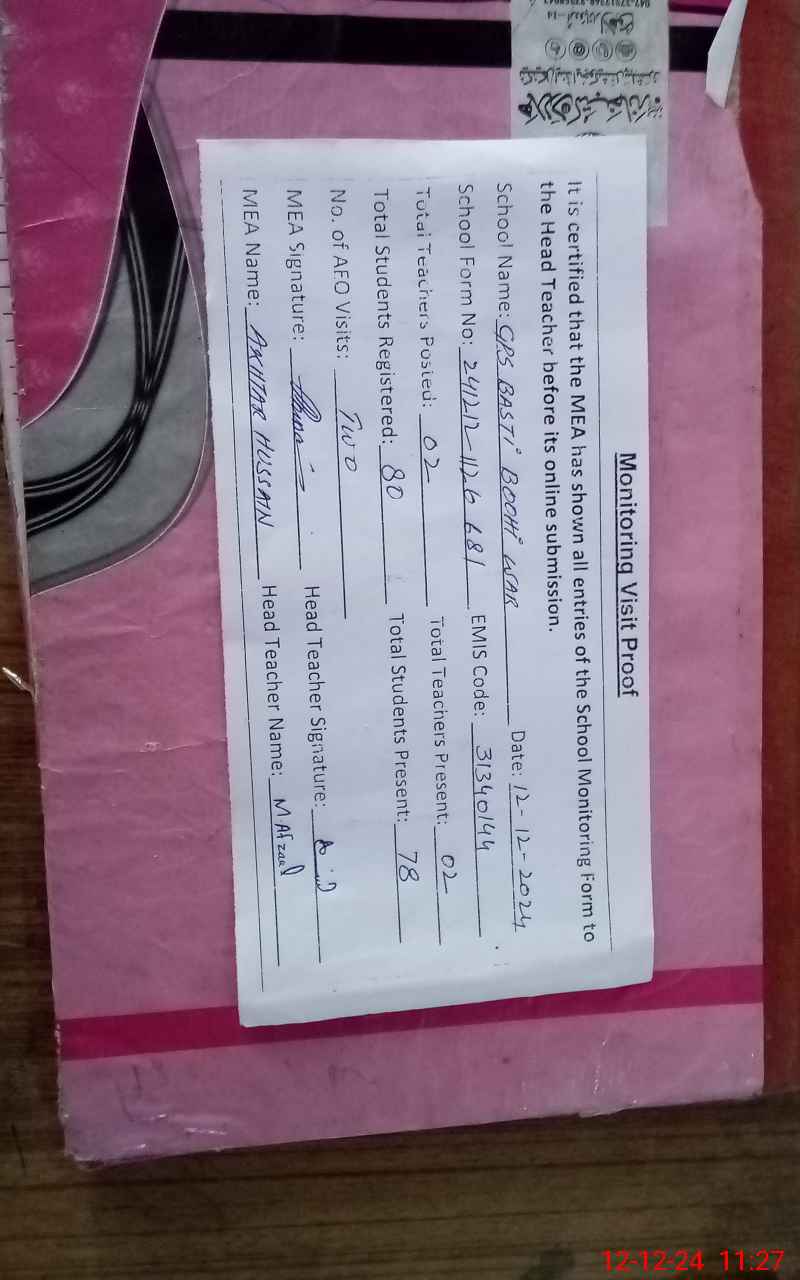 Monitoring Visit Proof
It is certified that the MEA has shown all entries of the School Monitoring Form to
the Head Teacher before its online submission.
School Name: GPS BASTI BOOHI WAR Date: 12-12-2024
School Form No: 241212-1126 681 EMIS Code: 31340144
Total Teachers Posted: 02 Total Teachers Present: 02
Total Students Registered: 80 Total Students Present: 78
No. of AEO Visits: TWO
MEA Signature: Head Teacher Signature:
MEA Name: AKHTAR HUSSAIN Head Teacher Name: M.Afzal
12-12-24 11:27